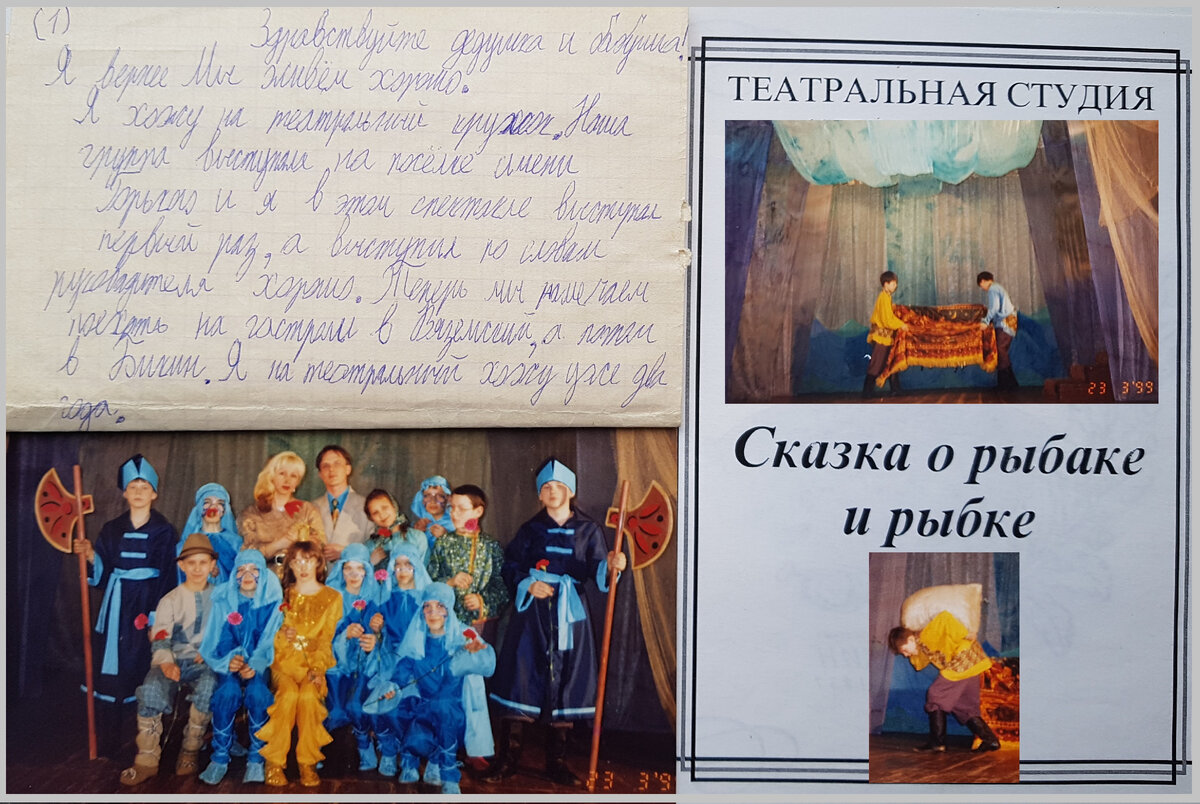 (1)
Здравствуйте дедушка и бабушка!
Я вернее Мы живём хорошо.
Я хожу на театральный кружок. Наша
группа выступала на посёлке имени
Горького и я в этом спектакле выступал
первый раз, а выступил по словам
руководителя хорошо. Теперь мы намечаем
поехать на гастроли в Вяземский, а потом
в Бикин. Я на театральный хожу уже два
года.
ТЕАТРАЛЬНАЯ СТУДИЯ
23 3'99
Сказка о рыбаке
и рыбке
23 3'9